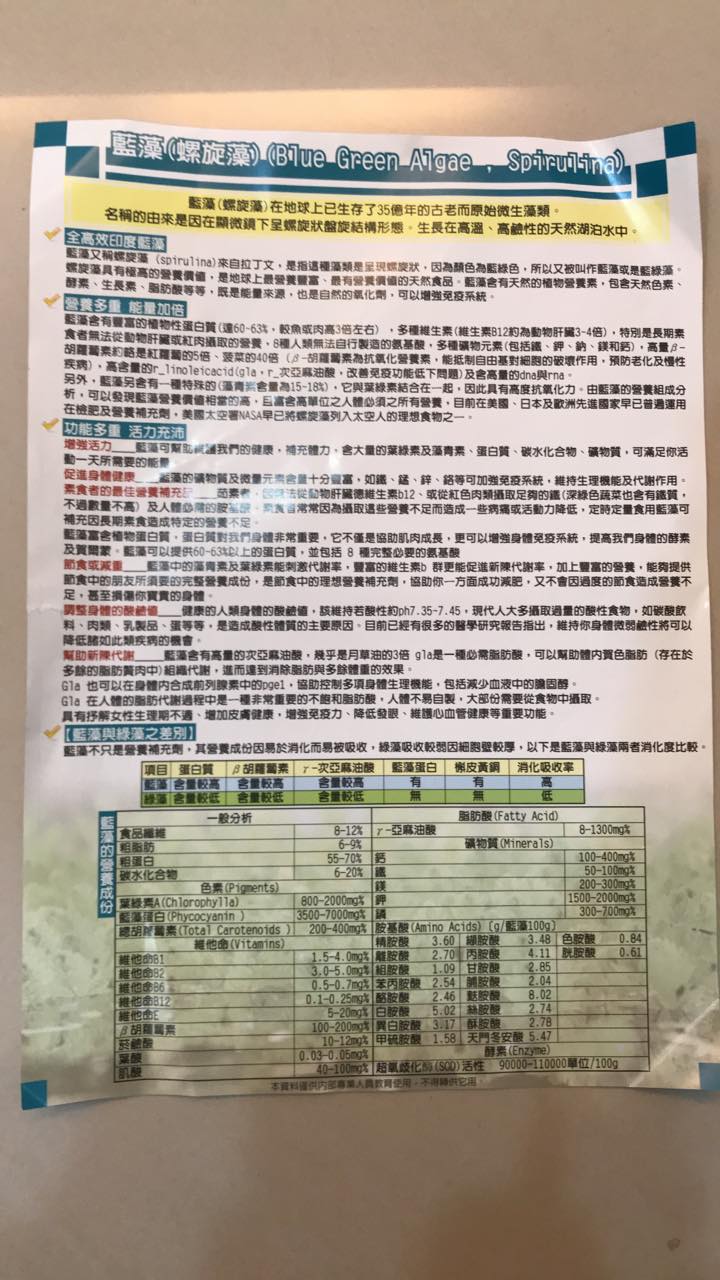 藍藻(螺旋藻)(Blue Green Algae , Spirulina)
藍藻(螺旋藻)在地球上已生存了35億年的古老而原始微生藻類。
名稱的由來是因在顯微鏡下呈螺旋狀盤旋結構形態。生長在高溫、高鹼性的天然湖泊水中。
全高效印度藍藻
藍藻又稱螺旋藻 (spirulina)來自拉丁文，是指這種藻類是呈現螺旋狀，因為顏色為藍綠色，所以又被叫作藍藻或是藍綠藻。
螺旋藻具有極高的營養價值，是地球上最營養豐富、最有營養價值的天然食品。藍藻含有天然的植物營養素，包含天然色素、
酵素、生長素、脂肪酸等等，既是能量來源，也是自然的氧化劑，可以增強免疫系統。
營養多重 能量加倍
藍藻含有豐富的植物性蛋白質(達60-63%，較魚或肉高3倍左右)，多種維生素(維生素B12約為動物肝臟3-4倍)，特別是長期素
食者無法從動物肝臟或紅肉攝取的營養，8種人類無法自行製造的氨基酸，多種礦物元素(包括鐵、鉀、鈉、鎂和鈣)，高量β-
胡蘿蔔素約略是紅蘿蔔的5倍、菠菜的40倍 (β-胡蘿蔔素為抗氧化營養素，能抵制自由基對細胞的破壞作用，預防老化及慢性
疾病)，高含量的r_linoleicacid(gla，r_次亞麻油酸，改善免疫功能低下問題)及含高量的dna與rna。
另外，藍藻另含有一種特殊的(藻青素含量為15-18%)，它與葉綠素結合在一起，因此具有高度抗氧化力。由藍藻的營養組成分
析，可以發現藍藻營養價值相當的高，且富含高單位之人體必須之所有營養，目前在美國、日本及歐洲先進國家早已普遍運用
在健肥及營養補充劑，美國太空署NASA早已將螺旋藻列入太空人的理想食物之一。
功能多重 活力充沛
增強活力___藍藻可幫助 我們的健康，補充體力，含大量的葉綠素及藻青素、蛋白質、碳水化合物、礦物質，可滿足你活
動一天所需要的能量
促進身體健康___藍藻的礦物質及微量元素含量十分豐富，如鐵、錳、鋅、鉻等可加強免疫系統，維持生理機能及代謝作用。
素食者的最佳營養補充品___茹素者，因 法從動物肝臟德維生素b12、或從紅色肉類攝取足夠的鐵(深綠色蔬菜也含有鐵質，
不過數量不高) 及人體必需的胺基酸，素食者常常因為攝取這些營養不足而造成一些病痛或活動力降低，定時定量食用藍藻可
補充因長期素食造成特定的營養不足。
藍藻富含植物蛋白質，蛋白質對我們身體非常重要，它不僅是協助肌肉成長，更可以增強身體免疫系統，提高我們身體的酵素
及賀爾蒙。藍藻可以提供60-63%以上的蛋白質，並包括 8 種完整必要的氨基酸
節食或減重___藍藻中的藻青素及葉綠素能刺激代謝率，豐富的維生素b 群更能促進新陳代謝率，加上豐富的營養，能夠提供
節食中的朋友所須要的完整營養成份，是節食中的理想營養補充劑，協助你一方面成功減肥，又不會因過度的節食造成營養不
足，甚至損傷你寶貴的身體。
調整身體的酸鹼值___健康的人類身體的酸鹼值，該維持若酸性約ph7.35-7.45，現代人大多攝取過量的酸性食物，如碳酸飲
料、肉類、乳製品、蛋等等，是造成酸性體質的主要原因。目前已經有很多的醫學研究報告指出，維持你身體微弱鹼性將可以
降低諸如此類疾病的機會。
幫助新陳代謝___藍藻含有高量的次亞麻油酸，幾乎是月草油的3倍 gla是一種必需脂肪酸，可以幫助體內賀色脂肪 (存在於
多餘的脂肪贅肉中)組織代謝，進而達到消除脂肪與多餘體重的效果。
Gla 也可以在身體內合成前列腺素中的pge1，協助控制多項身體生理機能，包括減少血液中的膽固醇。
Gla 在人體的脂肪代謝過程中是一種非常重要的不飽和脂肪酸，人體不易自製，大部份需要從食物中攝取。
具有抒解女性生理期不適、增加皮膚健康，增強免疫力、降低發眼、維護心血管健康等重要功能。
【藍藻與綠藻之差別】
藍藻不只是營養補充劑，其營養成份因易於消化而易被吸收，綠藻吸收較弱因細胞壁較厚，以下是藍藻與綠藻兩者消化度比較。
項目 蛋白質 β胡蘿蔔素 γ-次亞麻油酸 藍藻蛋白 槲皮黃鋼 消化吸收率
藍藻 含量較高 含量較高 含量較高 有 有 高
綠藻 含量較低 含量較低 含量較低 無 無 低
藍藻的營養成份
一般分析
食品纖維 8-12%
粗脂肪 6-9%
粗蛋白 55-70%
碳水化合物 6-20%
色素(Pigments)
葉綠素A(Chlorophylla) 800-2000mg%
藍藻蛋白(Phycocyanin ) 3500-7000mg%
總胡蘿蔔素(Total Carotenoids ) 200-400mg%
維他命(Vitamins)
維他命B1 1.5-4.0mg%
維他命B2 3.0-5.0mg%
維他命B6 0.5-0.7mg%
維他命B12 0.1-0.25mg%
維他命E 5-20mg%
β胡蘿蔔素 100-200mg%
菸鹼酸 10-12mg%
葉酸 0.03-0.05mg%
肌酸 40-100mg%
脂肪酸(Fatty Acid)
γ-亞麻油酸 8-1300mg%
礦物質(Minerals)
鈣 100-400mg%
鐵 50-100mg%
鎂 200-300mg%
鉀 1500-2000mg%
磷 300-700mg%
胺基酸(Amino Acids) [g/藍藻100g]
精胺酸 3.60 纈胺酸 3.48 色胺酸 0.84
離胺酸 2.70 丙胺酸 4.11 胱胺酸 0.61
組胺酸 1.09 甘胺酸 2.85
苯丙胺酸 2.54 脯胺酸 2.04
酪胺酸 2.46 麩胺酸 8.02
白胺酸 5.02 絲胺酸 2.74
異白胺酸 3.17 酥胺酸 2.78
甲硫胺酸 1.58 天門冬安酸 5.47
酵素(Enzyme)
超氧歧化酶(SOD)活性 90000-110000單位/100g
本資料僅供內部專業人員教育使用，不得轉供它用